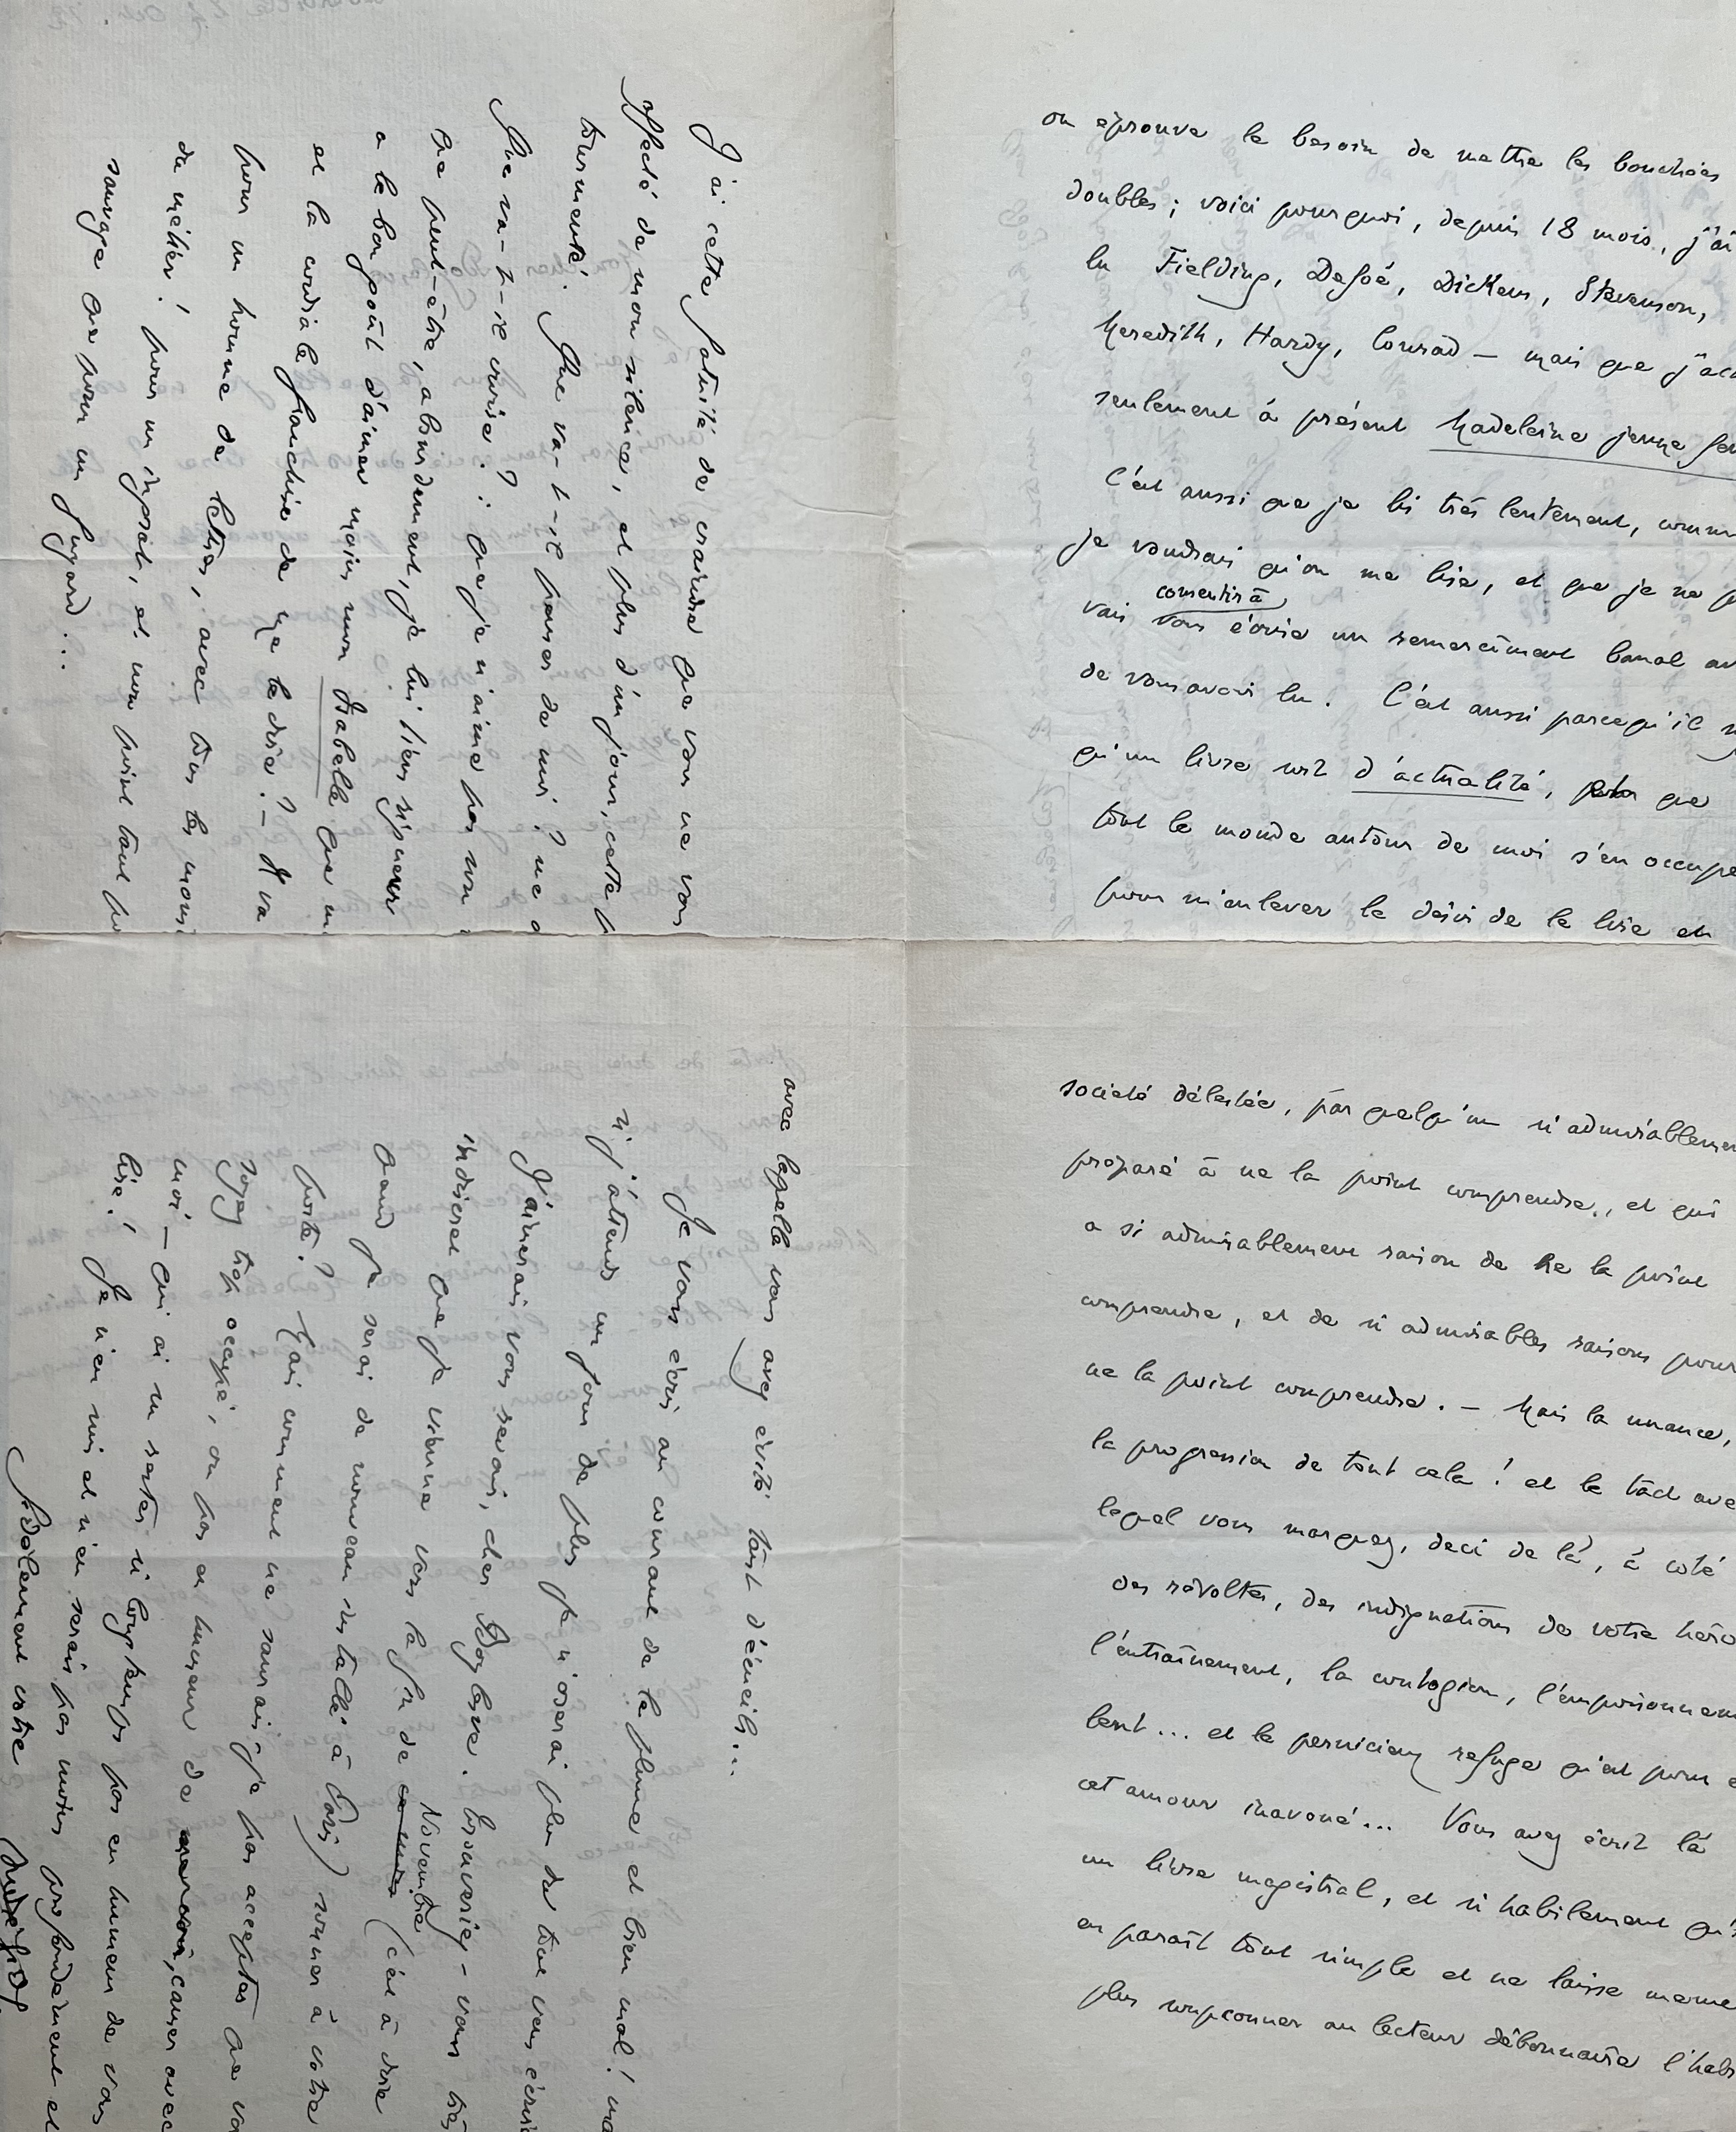 J'ai cette fatuité de craindre que vous ne vous
affecté de mon silence, et plus d'un jour, cette
tourmenté. Que va-t-il penser de moi? ne
Que va-t-il croire? : que je n'aime pas son
que peut-être, absurdement, je lui tiens rigueur
a le bon goût d'aimer moins mon Isabelle que
et la cordiale franchise de me le dire? — Il va
pour un homme de lettres, avec tous les
du métier! pour un ingrat, et non point tout
sauvage que pour un fuyard...
on éprouve le besoin de mettre les bouchées
doubles; voici pourquoi, depuis 18 mois, j'ai
lu Fielding, Defoé, Dickens, Stevenson,
Meredith, Hardy, Conrad — mais que j'ach
seulement à présent Madeleine jeune fe
C'est aussi que je lis très lentement, comm
je voudrais qu'on me lise, et que je ne p
vais consentir à vous écrire un remerciment banal av
de vous avoir lu. C'est aussi parcequ'il
qu'un livre soit d'actualité, que
tout le monde autour de moi s'en occupe
pour m'enlever le désir de le lire et
avec laquelle vous avez évité tant d'écueils...
Je vous écris au courant de la plume et bien mal! ma
si j'attends un jour de plus je n'oserai plus du tout vous écrire
J'aimerais vous revoir, cher Boylesve. Trouveriez-vous très
indiscret que je vienne vers la fin de Novembre (c'est à dire
quand je serai de nouveau installé à Paris) sonner à votre
porte? Mais comment ne saurais-je pas accepter que vo
soyez trop occupé, ou pas en humeur de causer avec
moi — qui ai su rester si longtemps pas en humeur de vous
lire! Je n'en suis et n'en serai pas moins profondément et
fidèlement votre
André Gide
société délestée, par quelqu'un si admirableme
préparé à ne la point comprendre, et qui
a si admirablement raison de ne la point
comprendre, et de si admirables raisons pour
ne la point comprendre. — Mais la nuance,
la progression de tout cela! et le tact ave
lequel vous marquez, deci de là, à coté
des révoltes, des indignations de votre héro
l'entraînement, la contagion, l'empoisonnem
lent... et le pernicieux refuge qu'est pour e
cet amour inavoué... Vous avez écrit là
un livre magistral, et si habilement qu'i
en paraît tout simple et ne laisse meme
plus soupconner au lecteur débonnaire l'habi